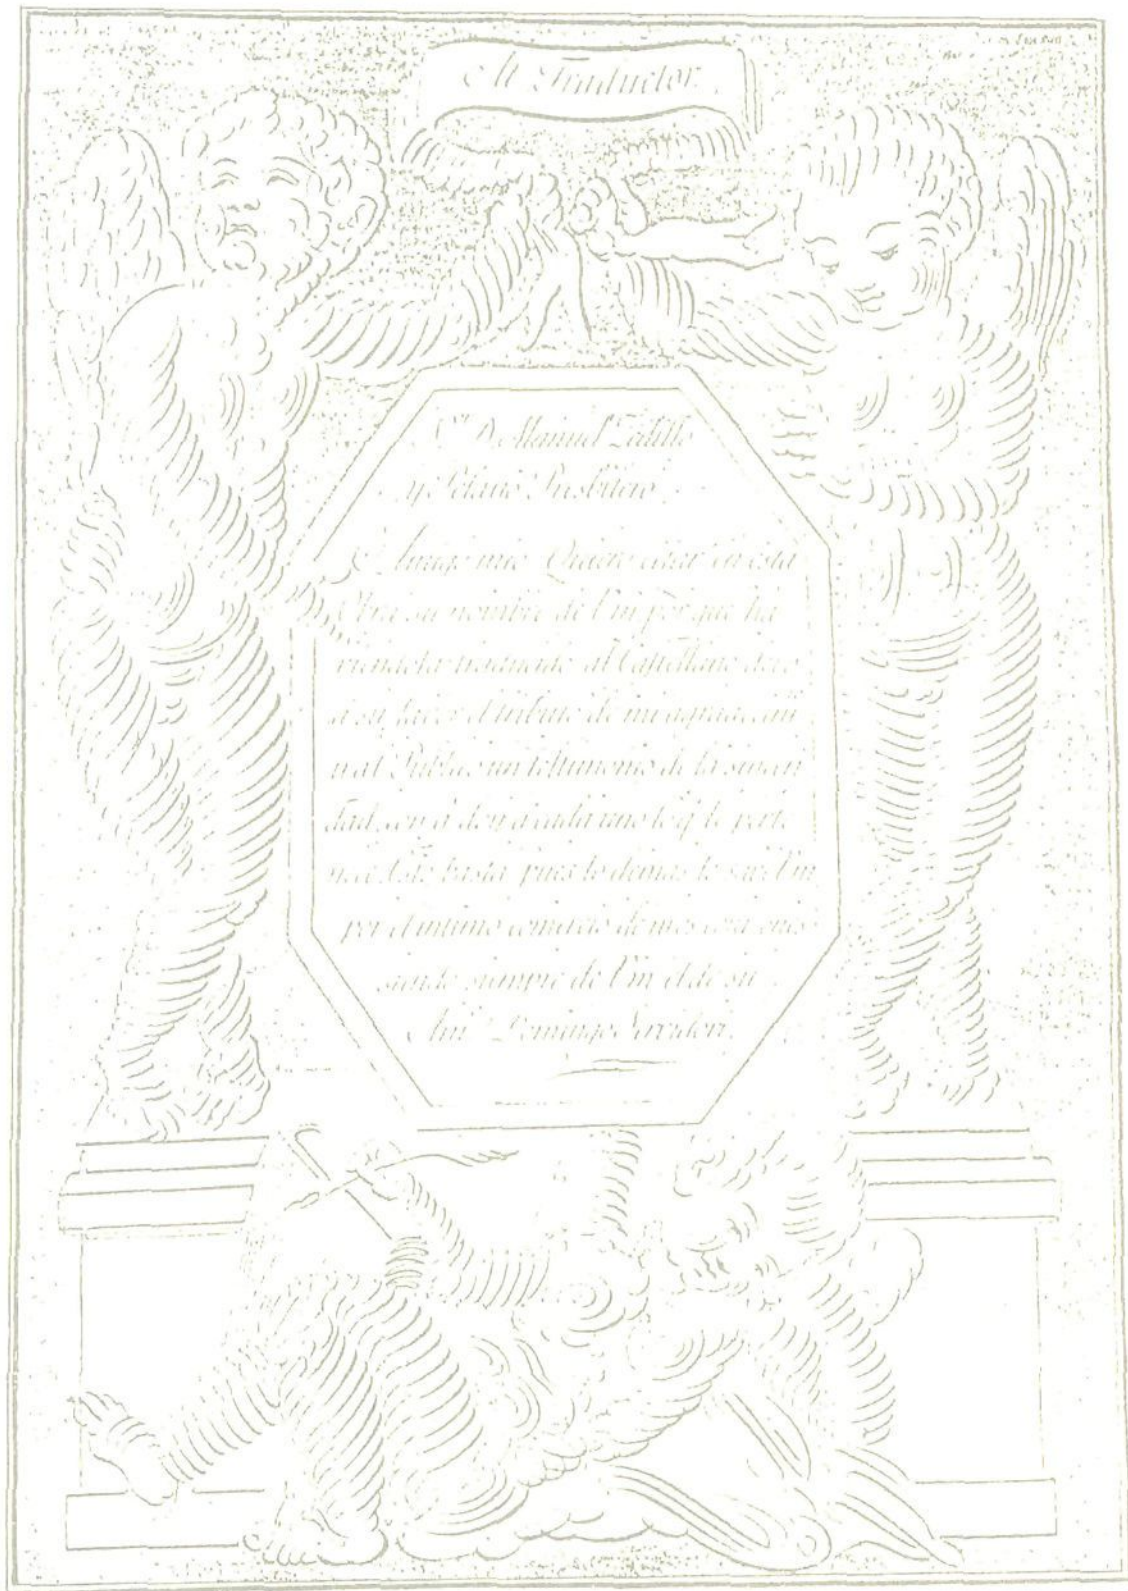 Al Traductor.
Sr. Dn. Manuel Zadillo
y Presbitero
Amigo mio. Quiero en esta
Obra su nombre de Vm. por que ha
viendola traducido al Castellano
a su favor el tributo de mi
y al Publico un testimonio de la
dad, con q. doy a cada uno lo q. le perte
nece. Esto basta pues lo demas lo sabe Vm
por el intimo comercio de nros. corazones
siendo siempre de Vm. el de su
Amo. Domingo Servidori.